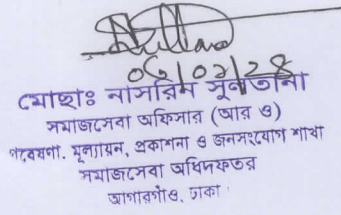 ০৬/০২/২৪
মোছাঃ নাসরিন সুলতানা
সমাজসেবা অফিসার (আর ও)
গবেষণা, মূল্যায়ন, প্রকাশনা ও জনসংযোগ শাখা
সমাজসেবা অধিদফতর
আগারগাঁও, ঢাকা